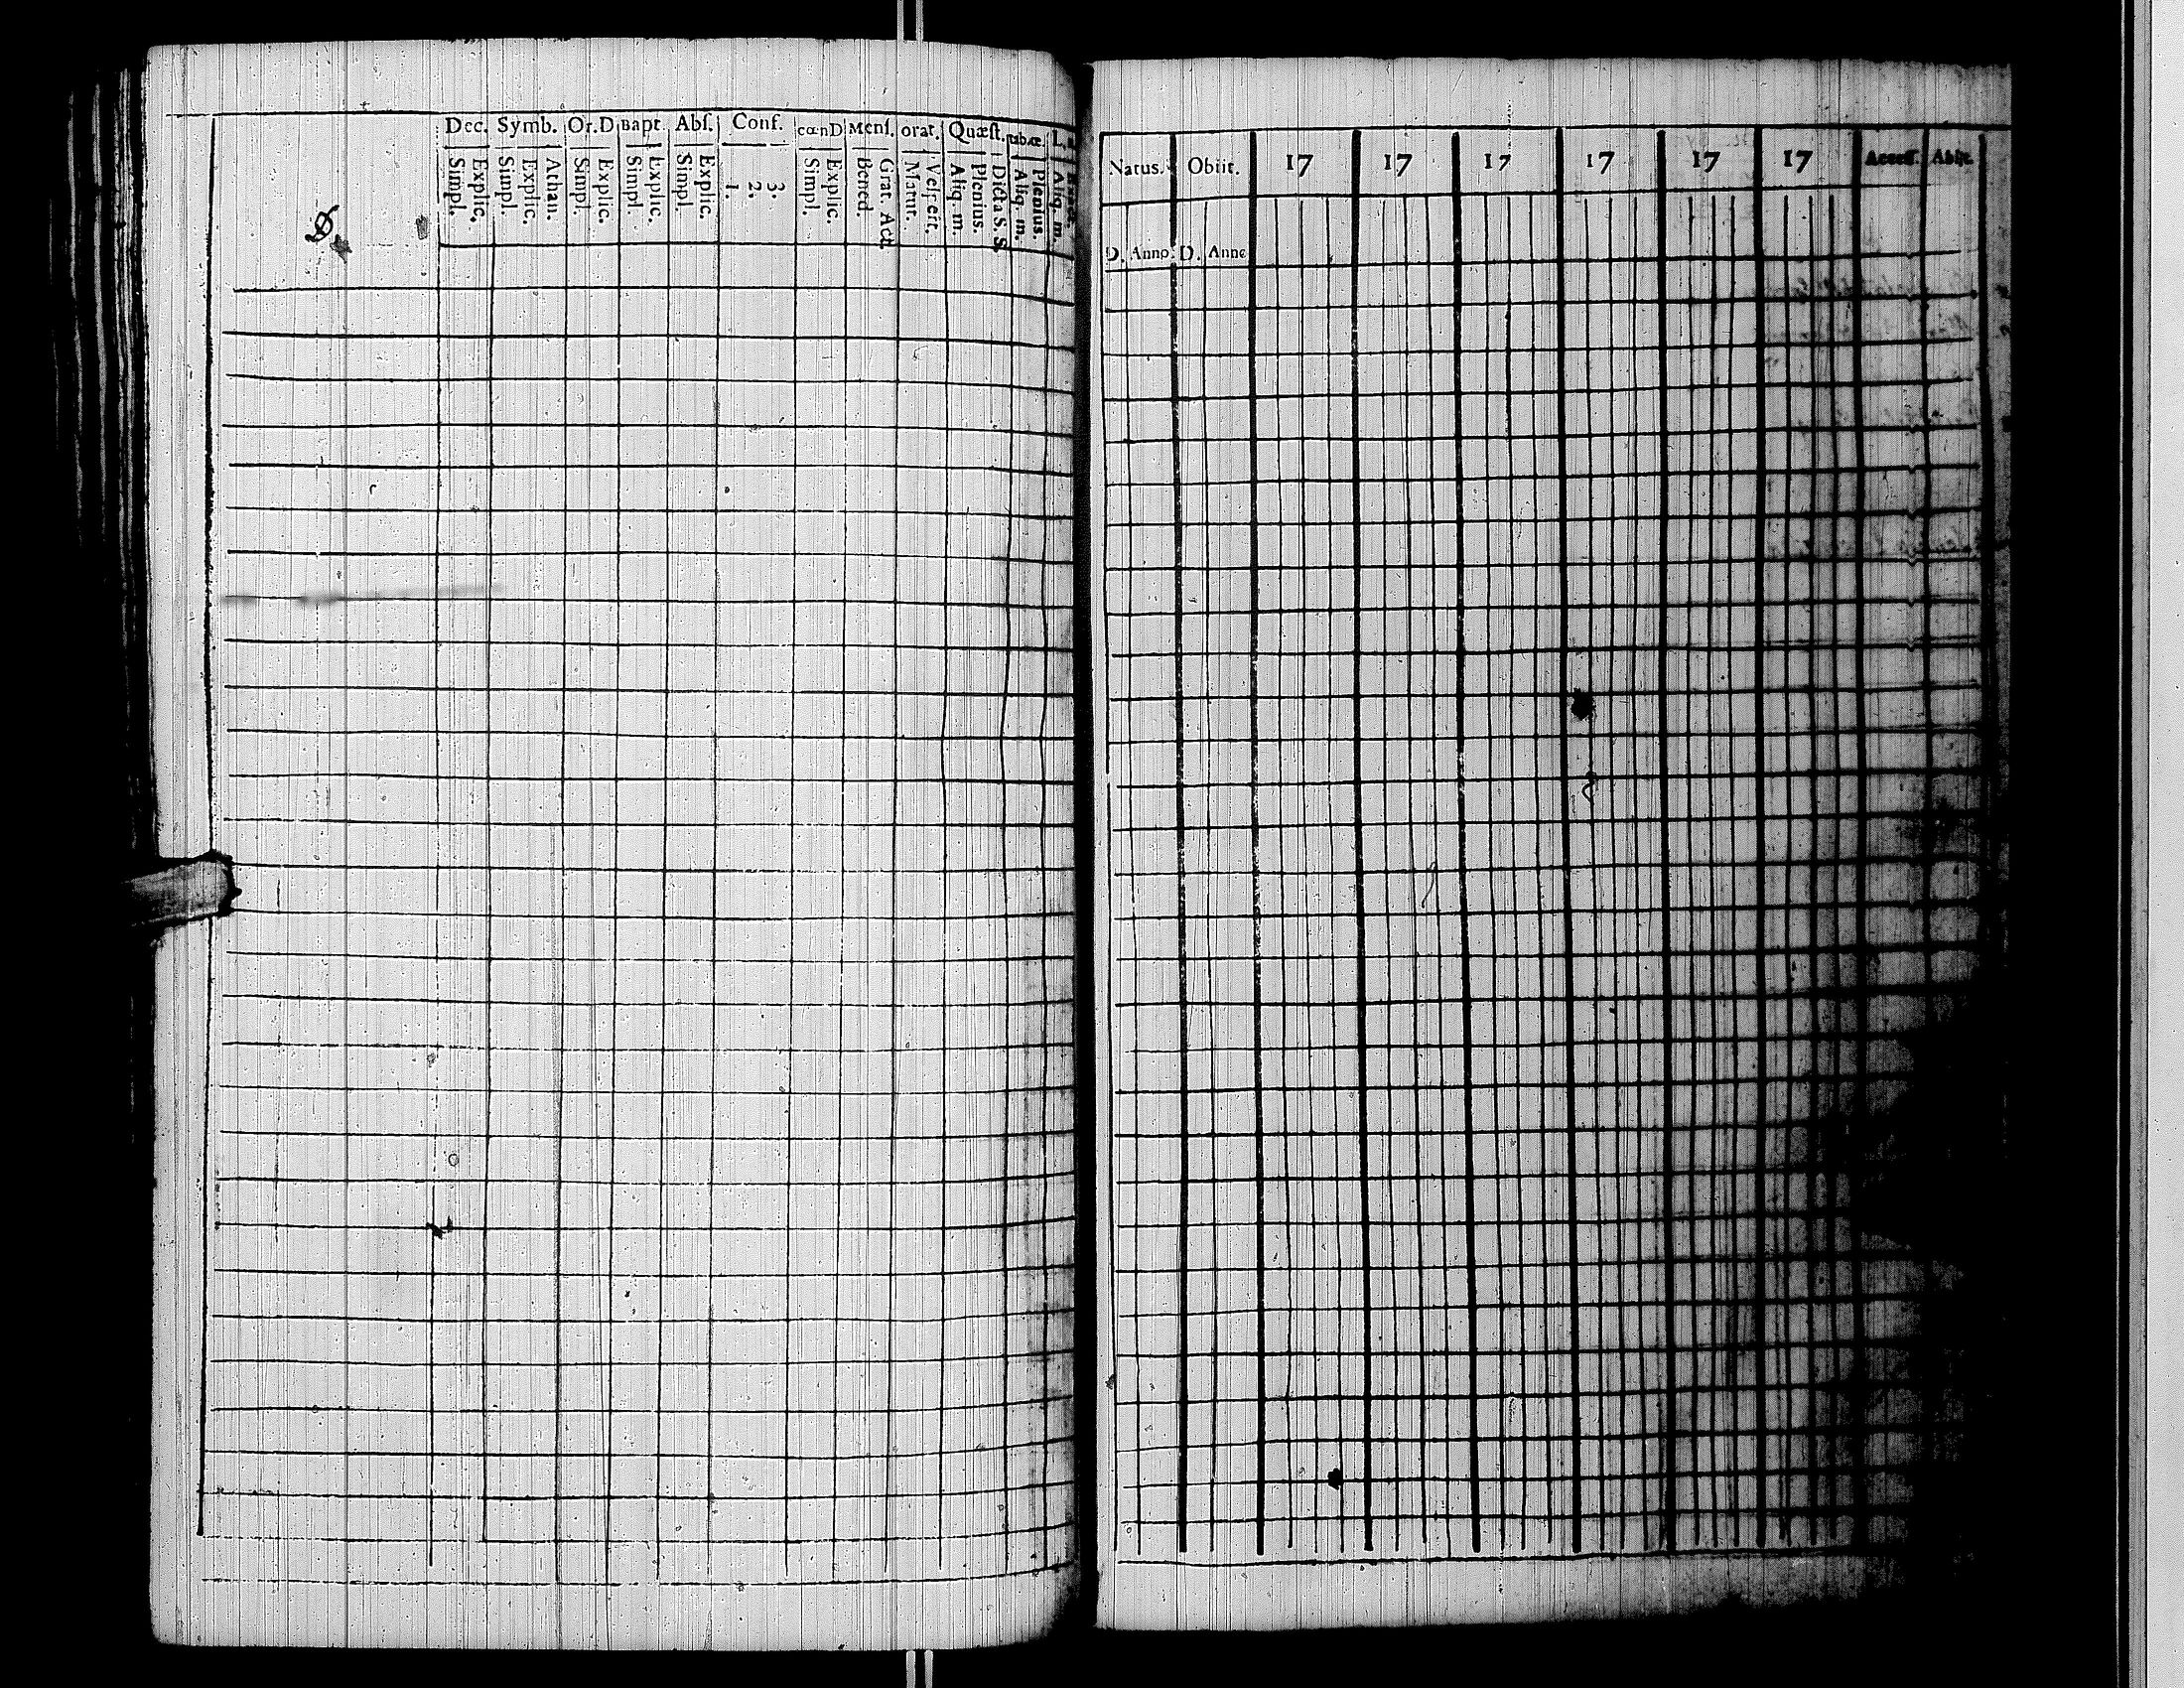 Dec. Symb. Or.D Bapt. Abs. Conf. cœnD Mens. orat. Quæst.
Simpl. Explic. Simpl. Explic. Athan. Simpl. Explic. Simpl. Explic. Simpl. Explic. 1. 2. 3. Simpl. Explic. Bened. Grat. Act. Matut. Vespert. Aliq. m. Plenius. Dicta S. S. Aliq. m. Plenius. Aliq. m.
Natus. Obiit. 17 17 17 17 17 17 Access. Abiit.
D. Anno. D. Anno